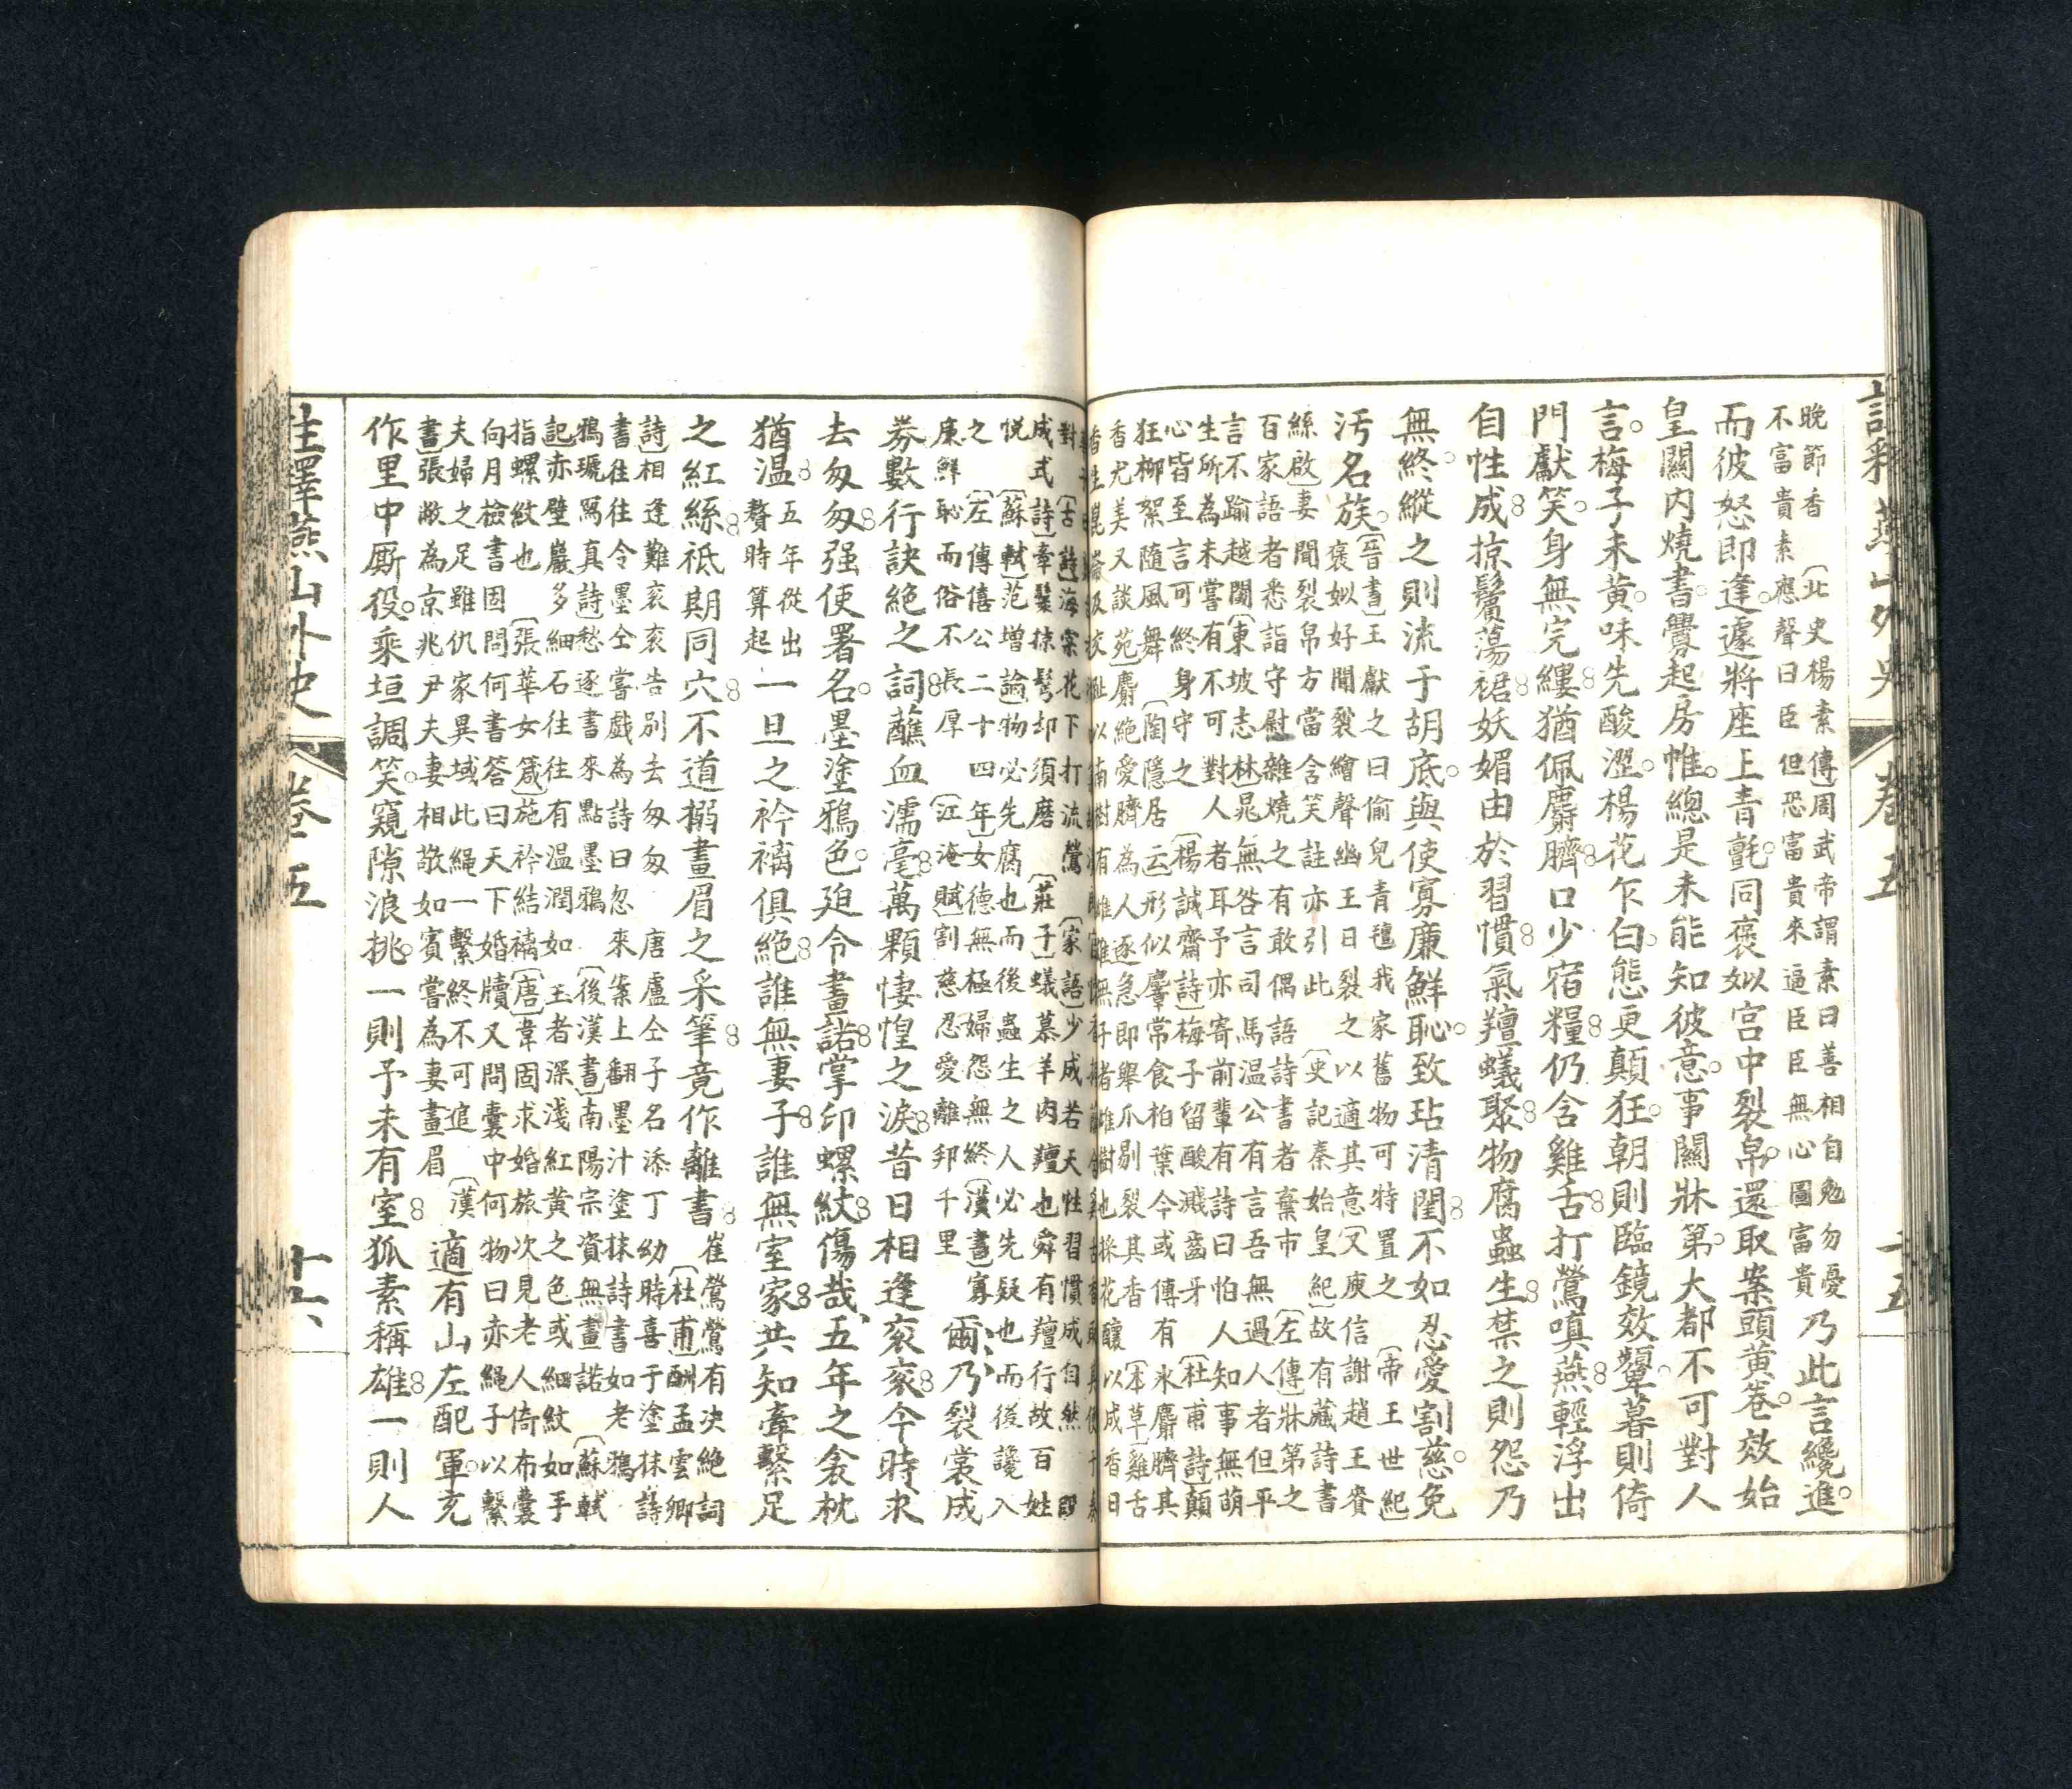 註釋燕山外史 卷五 十五
晚節香 〔北史楊素傳〕周武帝謂素曰善相自勉勿憂
不富貴素應聲曰臣但恐富貴來逼臣臣無心圖富貴 乃此言纔進。
而彼怒即逢。遽將座上青氈。同褒姒宮中裂帛。還取案頭黃卷。效始
皇闕内燒書。釁起房帷。總是未能知彼意。事關牀第。大都不可對人
言。梅子未黃。味先酸澀。楊花乍白。態更顛狂。朝則臨鏡效顰。暮則倚
門獻笑。身無完縷。猶佩麝臍。口少宿糧。仍含雞舌。打鶯嗔燕。輕浮出
自性成。掠鬢蕩裙。妖媚由於習慣。氣羶蟻聚。物腐蟲生。禁之則怨乃
無終。縱之則流于胡底。與使寡廉鮮恥。致玷清閨。不如忍愛割慈。免
汚名族。
〔晉書〕王獻之曰偷兒青氊我家舊物可特置之 〔帝王世紀〕
褒姒好聞裂繒聲幽王日裂之以適其意〔又庾信謝趙王賚
絲啟〕妻聞裂帛方當含笑註亦引此 〔史記秦始皇紀〕故有藏詩書
百家語者悉詣守慰雜燒之有敢偶語詩書者棄市 〔左傳〕牀第之
言不踰越閾〔東坡志林〕晁無咎言司馬温公有言吾無過人者但平
生所為未嘗有不可對人者耳予亦寄前輩有詩曰怕人知事無萌
心皆至言可終身守之 〔楊誠齋詩〕梅子留酸濺齒牙 〔杜甫詩〕顛
狂柳絮隨風舞 〔陶隱居云〕形似麞常食柏葉今或傳有水麝臍其
香尤美又談苑〕麝絕愛臍為人逐急即舉爪剔裂其香 〔本草〕雞舌
以南樹有雌雄無子者雌樹也採花釀以成香日
對 〔古詩〕海棠花下打流鶯 〔家語〕少成若天性習慣成自然 段
成式詩〕牽鬟掠鬢却須磨 〔莊子〕蟻慕羊肉羶也舜有羶行故百姓
悅 〔蘇軾范增論〕物必先腐也而後蟲生之人必先疑也而後讒入
之 〔左傳僖公二十四年〕女德無極婦怨無終〔漢書〕寡
廉鮮恥而俗不長厚 〔江淹賦〕割慈忍愛離邦千里 爾乃裂裳成
劵數行訣絕之詞。蘸血濡毫。萬顆悽惶之淚。昔日相逢衮衮。今時求
去匆匆。强使署名。墨塗鴉色。廹令畫諾。掌印螺紋。傷哉、五年之衾枕
猶温。五年從出
贅時算起 一旦之衿褵俱絕。誰無妻子。誰無室家。共知牽繫足
之紅絲。祗期同穴。不道搦畫眉之采筆。竟作離書。崔鶯鶯有决絕詞
〔杜甫酬孟雲卿
詩〕相逢難衮衮告别去匆匆 唐盧仝子名添丁幼時喜于塗抹詩
書往往令墨仝嘗戲為詩曰忽來案上翻墨汁塗抹詩書如老鴉
鴉璣駡真詩〕愁逐書來點墨鴉 〔後漢書〕南陽宗資無畫諾 〔蘇軾
記〕赤壁巖多細石往往有温潤如玉者深淺紅黃之色或細紋如手
指螺紋也 〔張華女箴〕施衿結褵〔唐〕韋固求婚旅次見老人倚布囊
向月檢書固問何書答曰天下婚牘又問囊中何物曰赤繩子以繫
夫婦之足雖仇家異域此繩一繫終不可追 〔漢
書〕張敞為京兆尹夫妻相敬如賓嘗為妻畫眉 適有山左配軍。充
作里中厮役。乘垣調笑。窺隙浪挑。一則予未有室。狐素稱雄。一則人
註釋燕山外史 卷五 十六